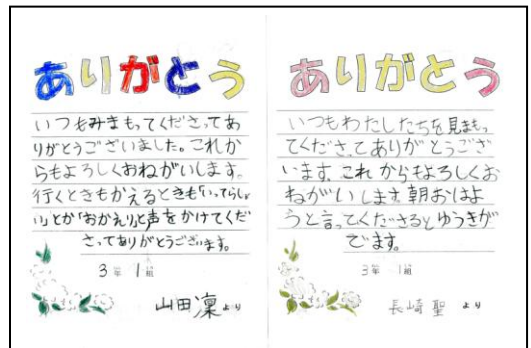 ありがとう
いつもみまもってくださってあ
りがとうございました。これか
らもよろしくおねがいします。
行くときもかえるときも「いってらっしゃ
い」とか「おかえり」と声をかけてくだ
さってありがとうございます。
3年 1組
山田凜より
ありがとう
いつもわたしたちを見まもっ
てくださってありがとうござ
います。これからもよろしくお
ねがいします。朝おはよ
うと言ってくださるとゆうきが
でます。
3年 1組
長崎聖より